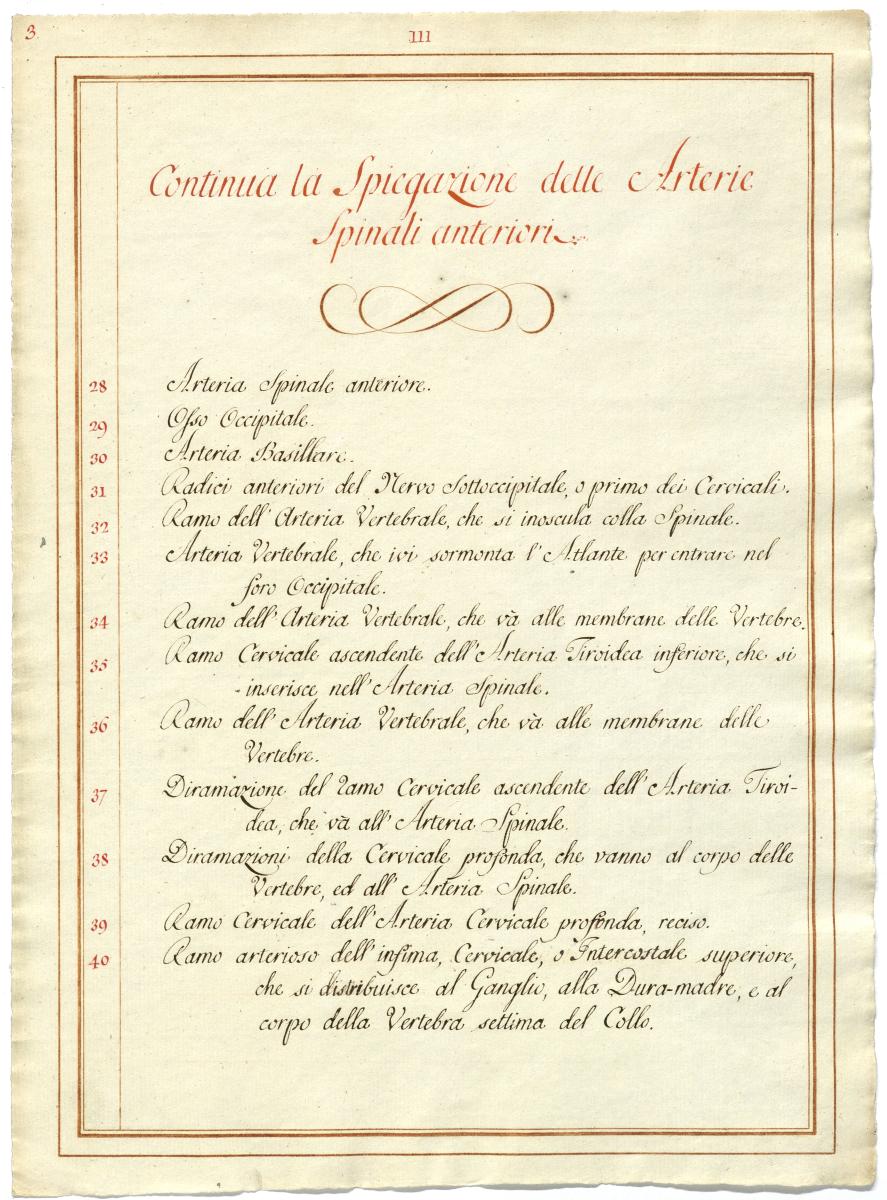 3
III
Continua la Spiegazione delle Arterie
Spinali anteriori.
28 Arteria Spinale anteriore.
29 Osso Occipitale.
30 Arteria Basillare.
31 Radici anteriori del Nervo Sottoccipitale, o primo dei Cervicali.
32 Ramo dell'Arteria Vertebrale, che si inoscula colla Spinale.
33 Arteria Vertebrale, che ivi sormonta l'Atlante per entrare nel
foro Occipitale.
34 Ramo dell'Arteria Vertebrale, che và alle membrane delle Vertebre.
35 Ramo Cervicale ascendente dell'Arteria Tiroidea inferiore, che si
inserisce nell'Arteria Spinale.
36 Ramo dell'Arteria Vertebrale, che và alle membrane delle
Vertebre.
37 Diramazione del ramo Cervicale ascendente dell'Arteria Tiroi-
dea, che và all'Arteria Spinale.
38 Diramazioni della Cervicale profonda, che vanno al corpo delle
Vertebre, ed all'Arteria Spinale.
39 Ramo Cervicale dell'Arteria Cervicale profonda, reciso.
40 Ramo arterioso dell'infima, Cervicale, o Intercostale superiore,
che si distribuisce al Ganglio, alla Dura-madre, e al
corpo della Vertebra settima del Collo.